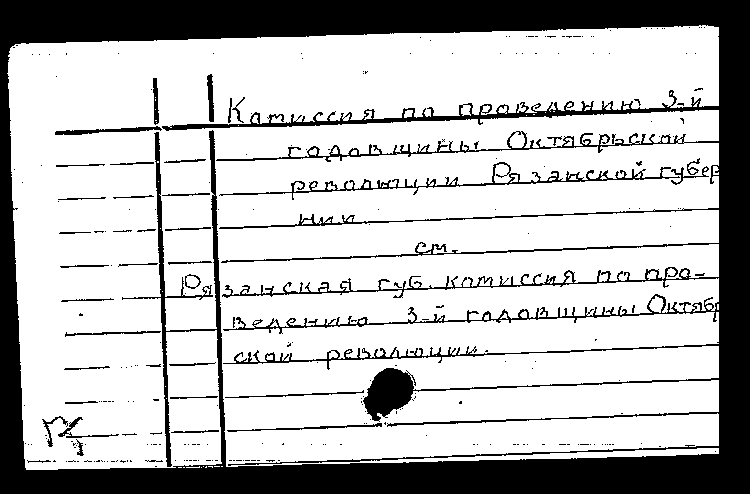 Комиссия по проведению 3-й
годовщины Октябрьской
революции Рязанской губер
нии
см.
Рязанская губ. комиссия по про-
ведению 3-й годовщины Октябр
ской революции.